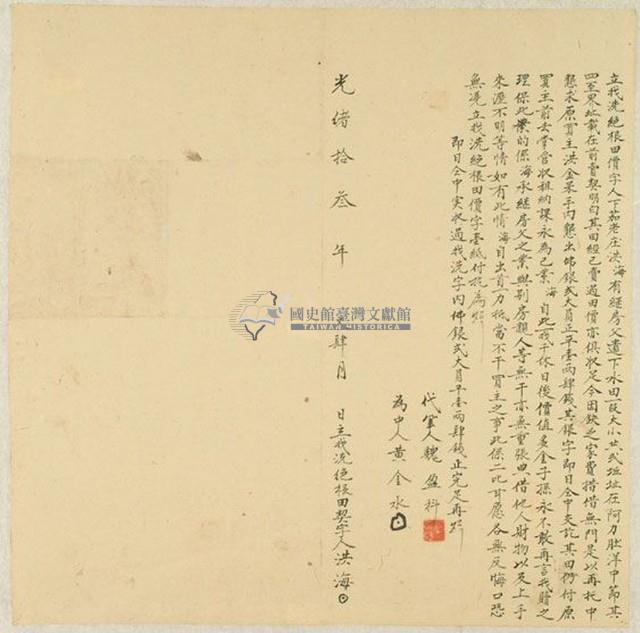 立找洗絕根田價字人下茄荖庄洪海有經房父遺下水田一段大小廿弍坵址在阿力肚洋中節其
四至界址載在前賣契明白其田經已賣過田價亦俱收足今因缺乏家費措借無門是以再托中
懇求原買主洪金菓手內懇出佛銀弍大員正平壹兩肆錢其銀字即日仝中交訖其田仍付原
買主前去掌管收租納課永為己業海自此一找千休日後價值多金子孫永不敢再言找贖之
理保此業的係海承經房父之業與別房親人等無干亦無重張典借他人財物以及上手
來歷不明等情如有此情海自出首力抵當不干買主之事此係二比甘愿各無反悔口恐
無憑立找洗絕根田價字壹紙付執為炤
即日仝中实收過找洗字內佛銀弍大員平壹兩肆錢正完足再炤
代筆人魏盈科
為中人黃全水
光緒拾叁年 肆月 日立找洗絕根田契字人洪海
國史館臺灣文獻館
TAIWAN HISTORICA